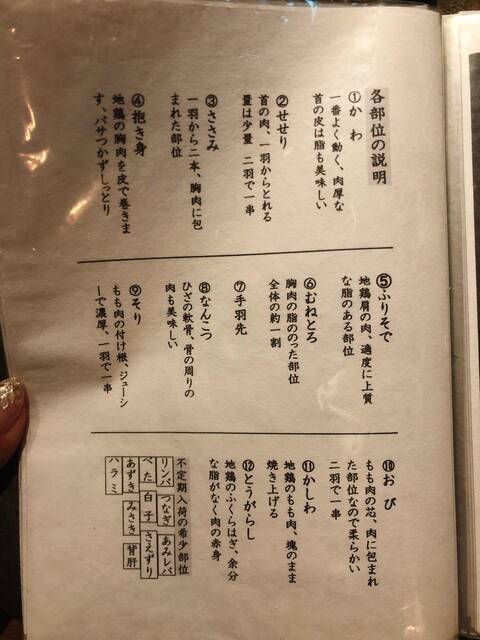 各部位の説明
①かわ
一番よく動く、肉厚な
首の皮は脂も美味しい
②せせり
首の肉、一羽からとれる
量は少量 二羽で一串
③ささみ
一羽から二本、胸肉に包
まれた部位
④抱き身
地鶏の胸肉を皮で巻きま
す、パサつかずしっとり
⑤ふりそで
地鶏肩の肉、適度に上質
な脂のある部位
⑥むねとろ
胸肉の脂ののった部位
全体の約一割
⑦手羽先
⑧なんこつ
ひざの軟骨、骨の周りの
肉も美味しい
⑨そり
もも肉の付け根、ジューシ
ーで濃厚、一羽で一串
⑩おび
もも肉の芯、肉に包まれ
た部位なので柔らかい
二羽で一串
⑪かしわ
地鶏のもも肉、塊のまま
焼き上げる
⑫とうがらし
地鶏のふくらはぎ、余分
な脂がなく肉の赤身
不定期入荷の希少部位
リンパ つなぎ あみレバ
べた 白子 さえずり
あずき みさき 背肝
ハラミ